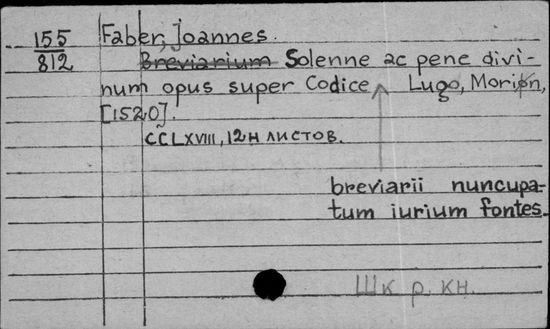 155
812
Faber, Joannes.
Breviarium Solenne ac pene divi-
num opus super Codice Lugo, Morion,
[1520].
CCLXVIII, 12н листов.
breviarii nuncupa-
tum iurium fontes.
Шк р. кн.